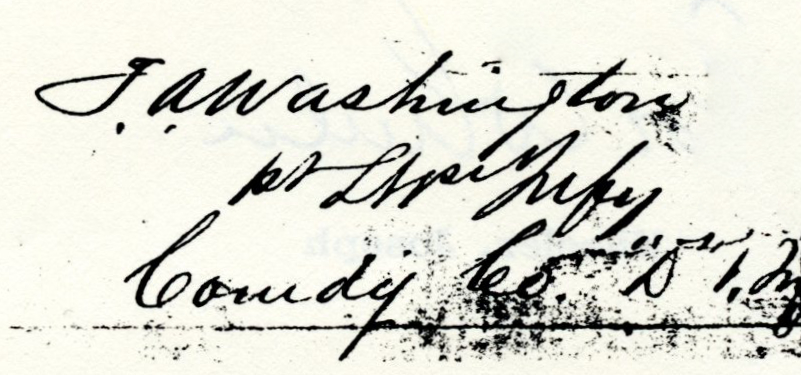 T. A. Washington
1st Lt 1st Infy
Comdg Co. "D" 1.